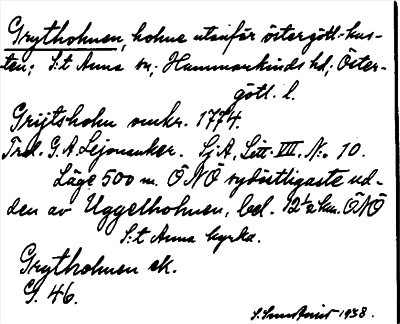 Grytholmen, holme utanför östergötl. kus-
ten; S:t Anna sn; Hammarkinds hd; Öster-
götl. l.
Grijtsholm omkr. 1774.
Trol. G. A. Lejonanker. Lj A, Litt. VII, No. 10.
Läge 500 m. ÖNÖ sydöstligaste ud-
den av Uggelholmen, bel. 12½ km. ÖNÖ
S:t Anna kyrka.
Grytholmen ek.
G. 46.
1938.